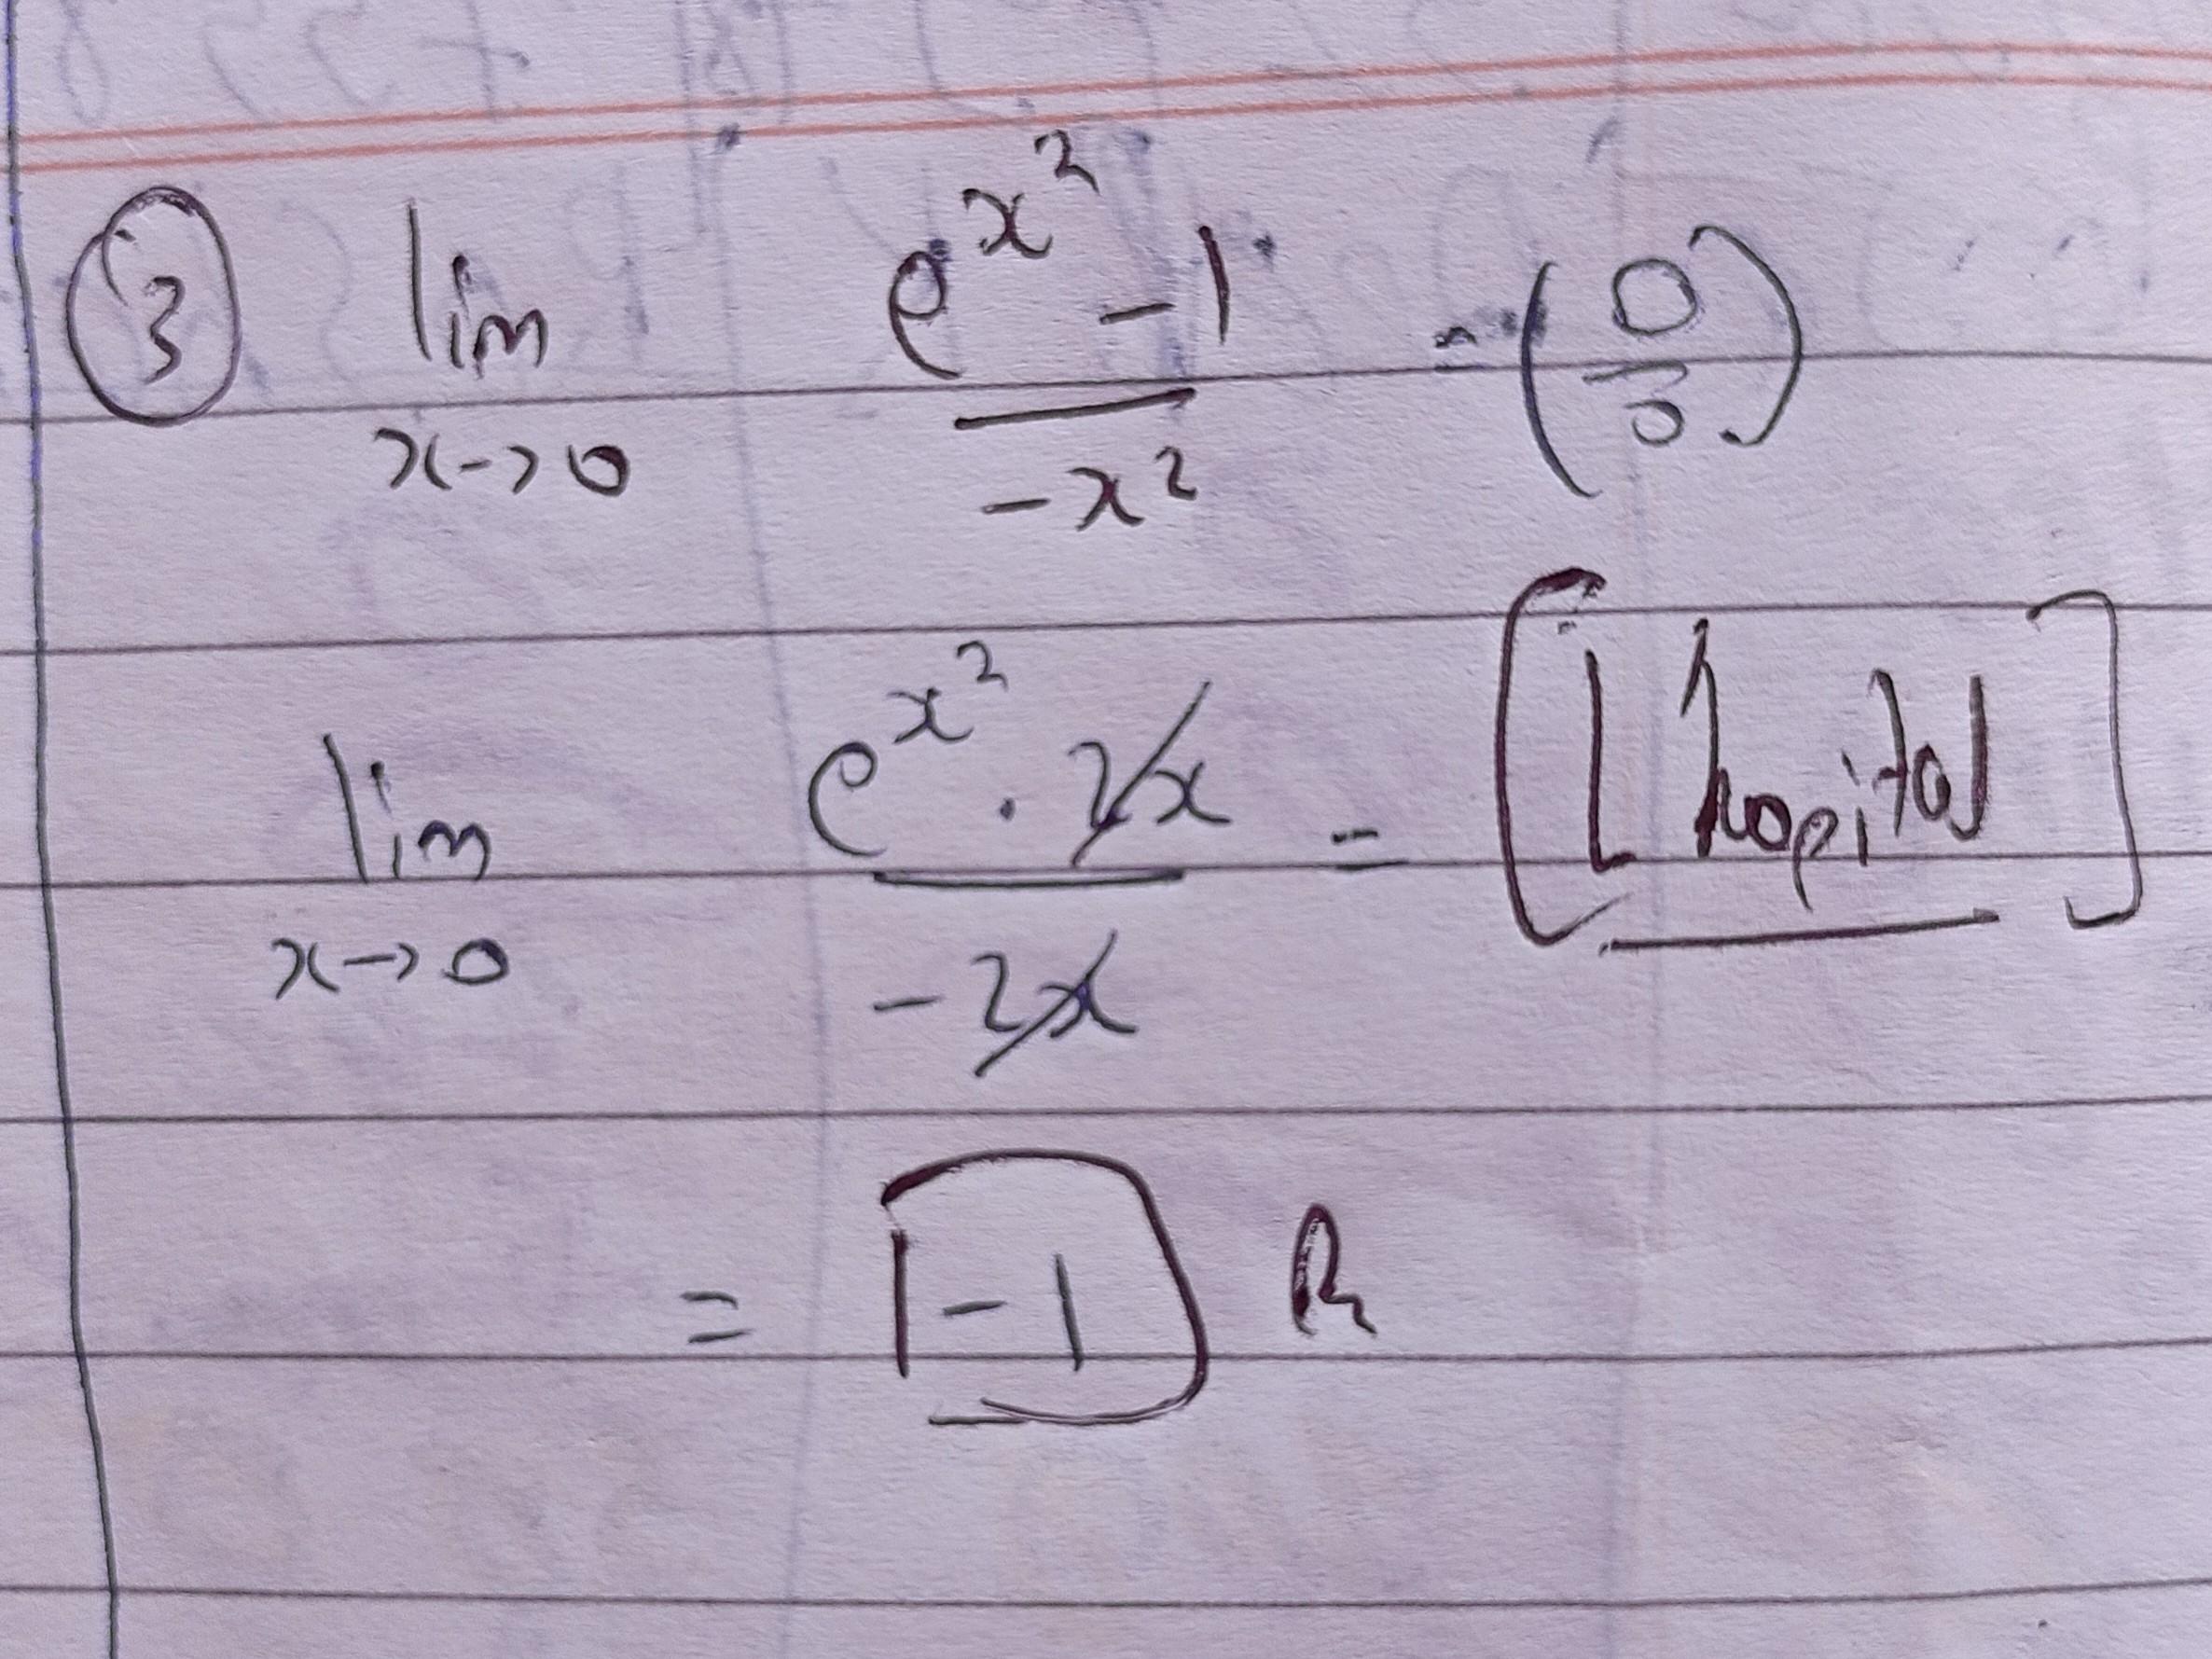 ③ lim x→0 (e^{x^2} - 1) / (-x^2) - (0/0)
lim x→0 (e^{x^2} · 2x) / (-2x) = [L hopital]
= -1